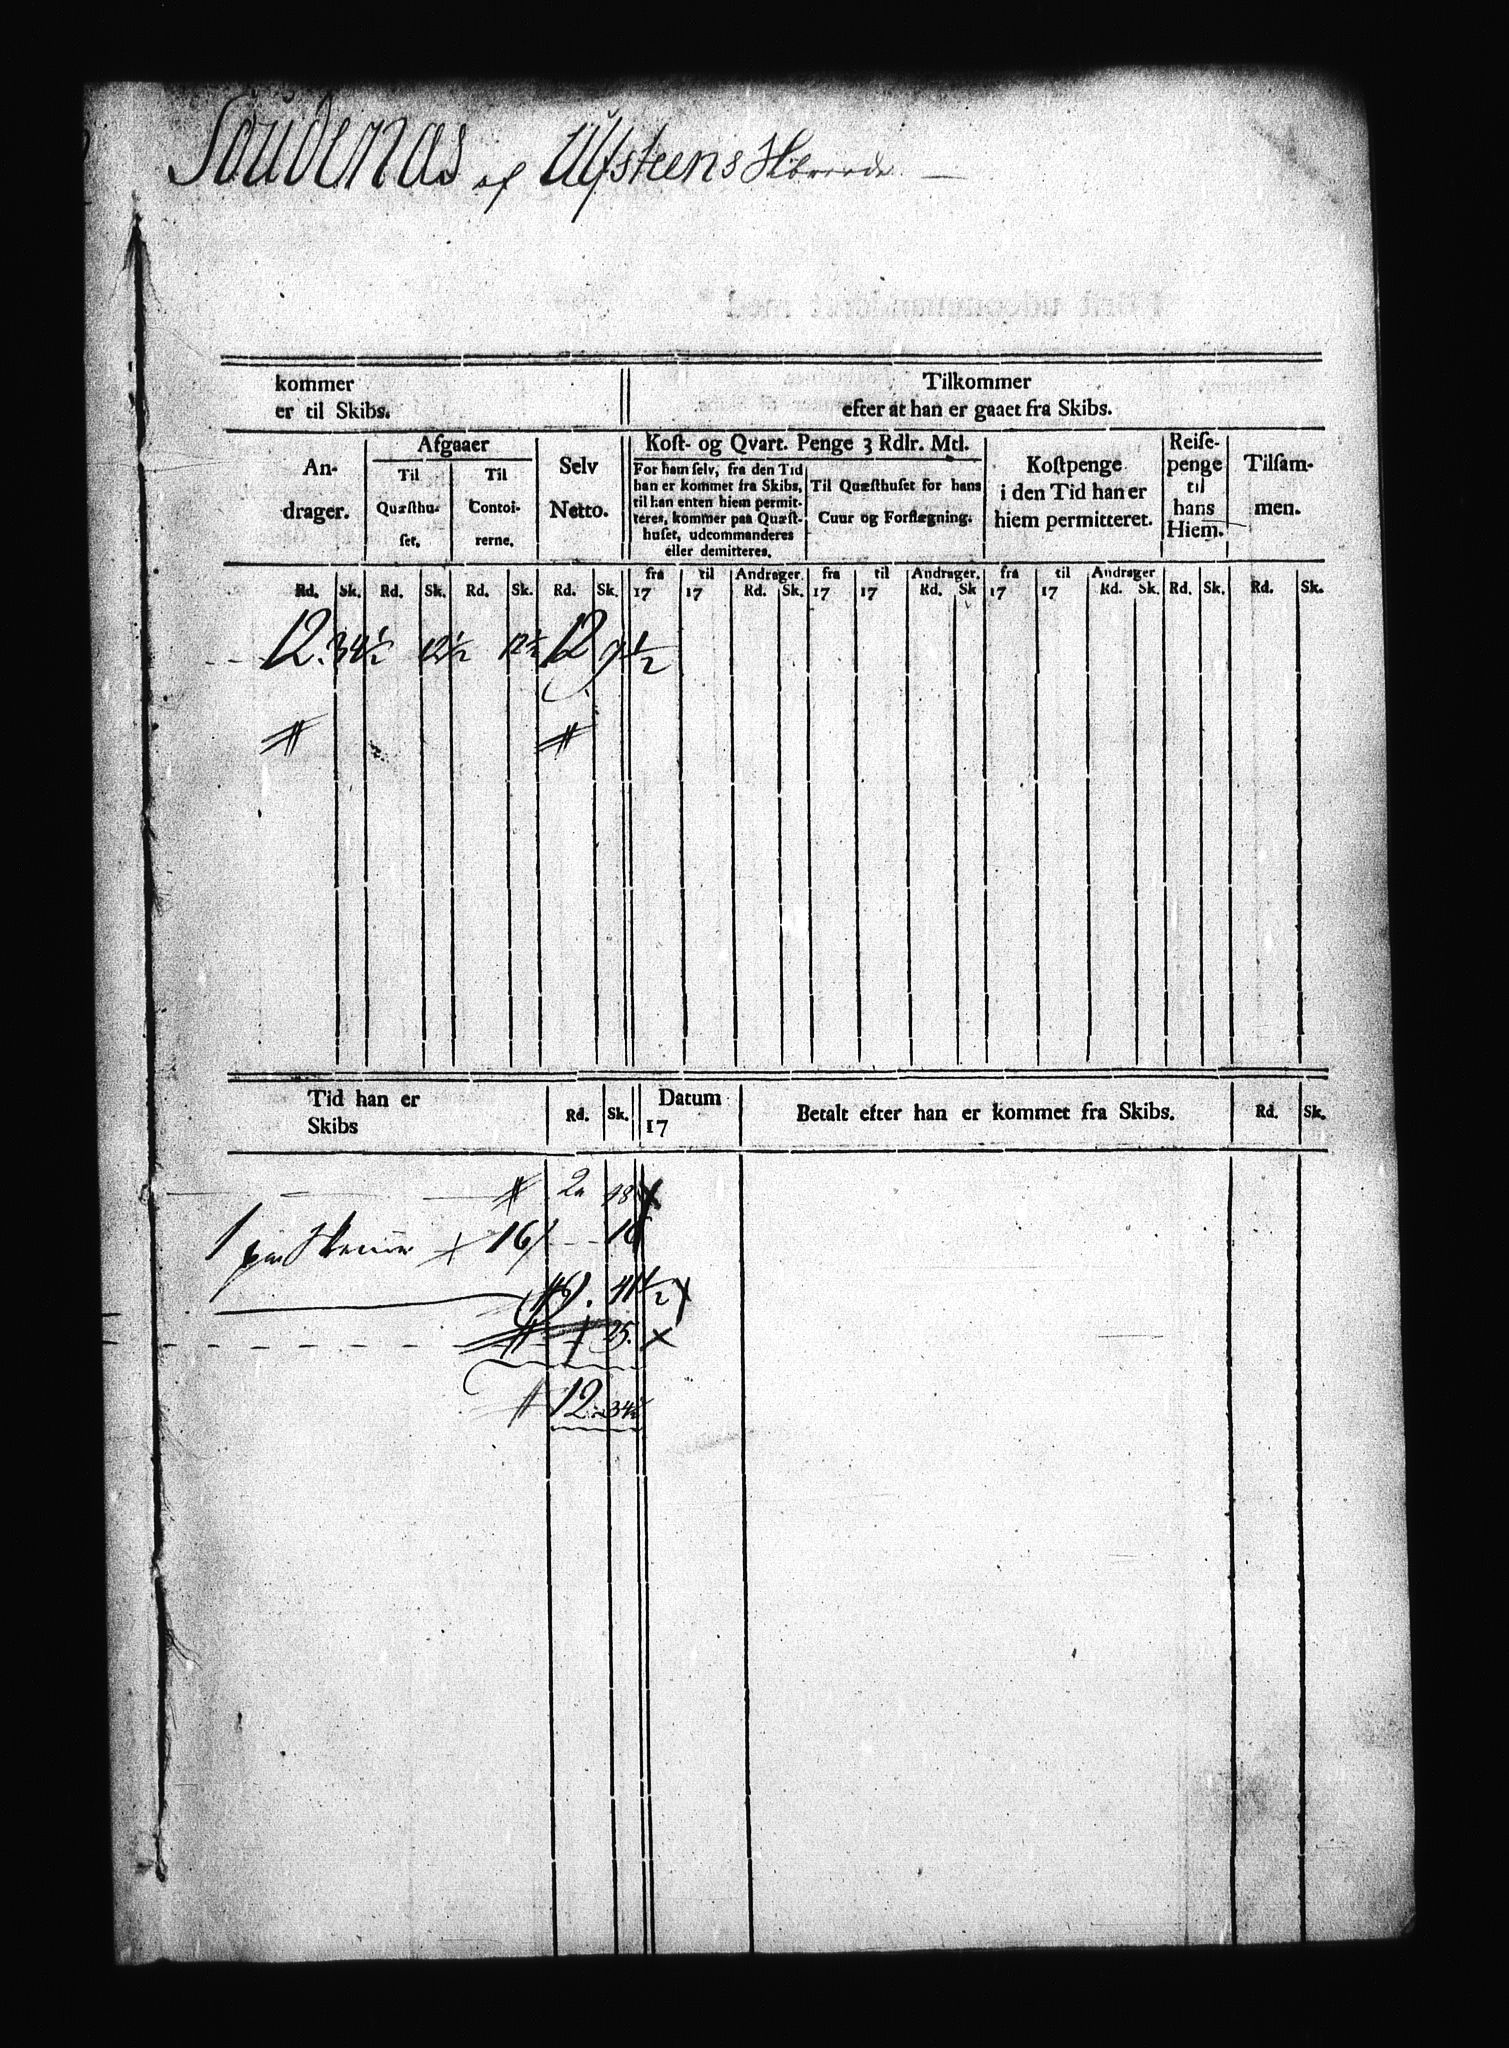 af Ulfsteens
kommer
er til Skibs.
Tilkommer
efter at han er gaaet fra Skibs.
An-
drager.
Afgaaer
Til
Quæsthu-
set.
Til
Contoi-
rerne.
Selv
Netto.
Kost- og Qvart. Penge 3 Rdlr. Mtl.
For ham selv, fra den Tid
han er kommet fra Skibs,
til han enten hiem permit-
teres, kommer paa Quæst-
huset, udcommanderes
eller demitteres.
Til Quæsthuset for hans
Cuur og Forflægning.
Kostpenge
i den Tid han er
hiem permitteret.
Reise-
penge
til
hans
Hiem.
Tilsam-
men.
Rd. Sk. Rd. Sk. Rd. Sk. Rd. Sk. fra 17 til 17 Andrager. Rd. Sk. fra 17 til 17 Andrager. Rd. Sk fra 17 til 17 Andrager Rd. Sk. Rd. Sk. Rd. Sk.
12. 34½ 12½ 12½ 12 9½
Tid han er
Skibs
Rd. Sk.
Datum
17
Betalt efter han er kommet fra Skibs.
Rd. Sk.
2 18
1 par 16 16
9. 41½
25.
12 34½